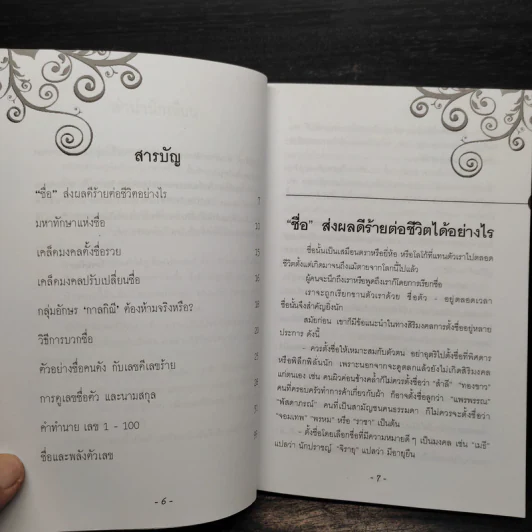 สารบัญ
“ชื่อ” ส่งผลดีร้ายต่อชีวิตอย่างไร 7
มหาทักษาแห่งชื่อ 10
เคล็ดมงคลตั้งชื่อรวย 15
เคล็ดมงคลปรับเปลี่ยนชื่อ 16
กลุ่มอักษร “กาลกิณี” ต้องห้ามจริงหรือ?
วิธีการบวกชื่อ
ตัวอย่างชื่อคนดัง กับเลขดีเลขร้าย
การดูเลขชื่อตัว และนามสกุล
คำทำนาย เลข 1 - 100
ชื่อและพลังตัวเลข
- 6 -
“ชื่อ” ส่งผลดีร้ายต่อชีวิตได้อย่างไร
ชื่อนั้นเป็นเสมือนตราหรือยี่ห้อ หรือโลโก้ที่แทนตัวเราไปตลอด
ชีวิตตั้งแต่เกิดมาจนถึงแม้ตายจากโลกนี้ไปแล้ว
ผู้คนจะนึกถึงเราหรือพูดถึงเราก็โดยการเรียกชื่อ
เราจะถูกเรียกขานตัวเราด้วย ชื่อตัว - อยู่ตลอดเวลา
ชื่อนั้นจึงสำคัญยิ่งนัก
สมัยก่อน เขาก็มีข้อแนะนำในทางสิริมงคลการตั้งชื่ออยู่หลาย
ประการ ดังนี้
- ควรตั้งชื่อให้เหมาะสมกับตัวตน อย่าอุตริไปตั้งชื่อที่พิศดาร
หรือพิลึกพิลั่นนัก เพราะนอกจากจะดูตลกแล้วยังไม่เกิดสิริมงคล
แก่ตนเอง เช่น คนผิวค่อนข้างคล้ำก็ไม่ควรตั้งชื่อว่า “สำลี” “ทองขาว”
คนที่ครอบครัวทำการค้าเกี่ยวกับผ้า ก็อาจตั้งชื่อลูกว่า “แพรพรรณ”
“พัสดาภรณ์” คนที่เป็นสามัญชนคนธรรมดา ก็ไม่ควรจะตั้งชื่อว่า
“จอมเทพ” “พรหม” หรือ “ราชา” เป็นต้น
- ตั้งชื่อโดยเลือกชื่อที่มีความหมายดีๆ เป็นมงคล เช่น “เมธี”
แปลว่า นักปราชญ์ “จิรายุ” แปลว่า มีอายุยืน
- 7 -